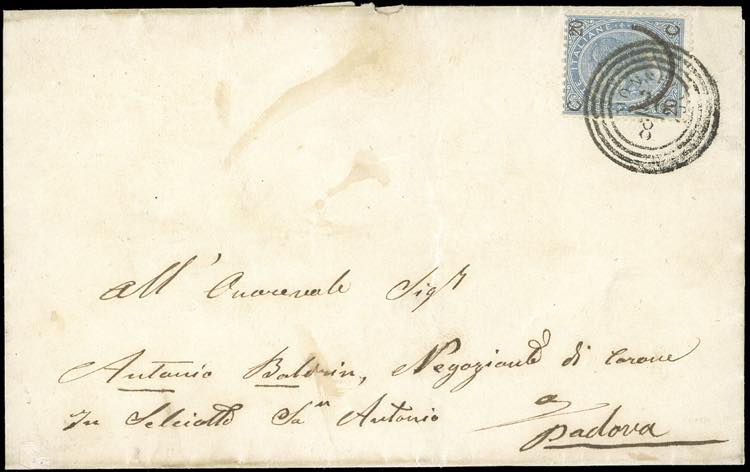 All' Onorevole Sigr
Antonio Baldrin, Negoziante di Corone
In Selciatto San Antonio
a
Padova
C 20
ITALIANE
20 C